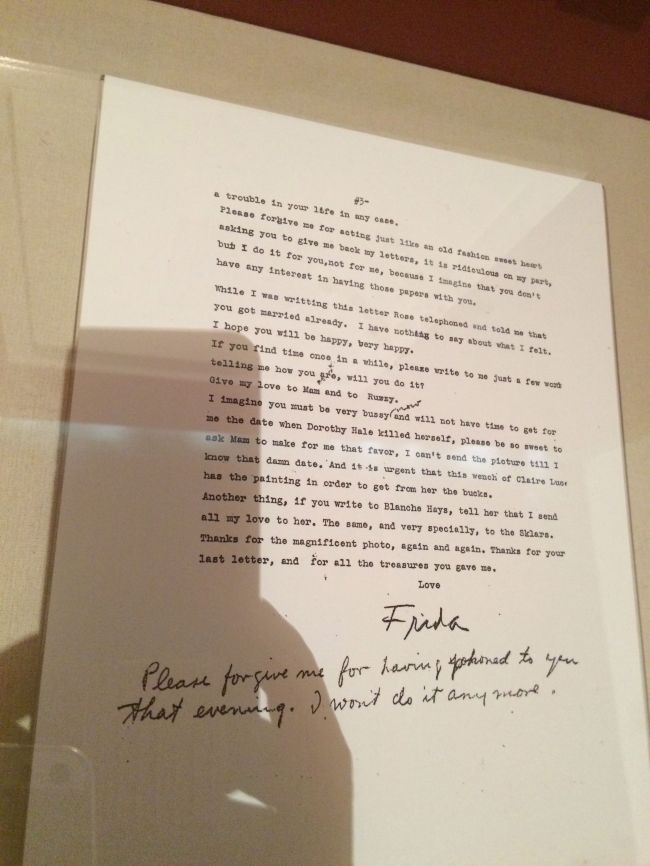 #3-
a trouble in your life in any case.
Please forgive me for acting just like an old fashion sweet heart
asking you to give me back my letters, it is ridiculous on my part,
but I do it for you,not for me, because I imagine that you don't
have any interest in having those papers with you.
While I was writting this letter Rose telephoned and told me that
you got married already. I have nothing to say about what I felt.
I hope you will be happy, very happy.
If you find time once in a while, please write to me just a few words
telling me how you are, will you do it?
Give my love to Mam and to Ruzzy.
I imagine you must be very bussy now and will not have time to get for
me the date when Dorothy Hale killed herself, please be so sweet to
ask Mam to make for me that favor, I can't send the picture till I
know that damn date. And it is urgent that this wench of Claire Luce
has the painting in order to get from her the bucks.
Another thing, if you write to Blanche Hays, tell her that I send
all my love to her. The same, and very specially, to the Sklars.
Thanks for the magnificent photo, again and again. Thanks for your
last letter, and for all the treasures you gave me.
Love
Frida
Please forgive me for having phoned to you
that evening. I won't do it any more.